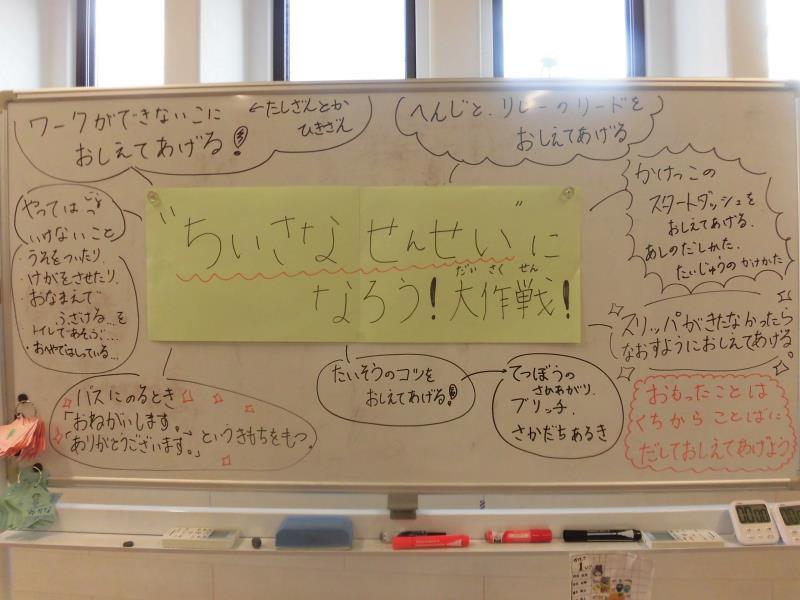 ワークができないこに
おしえてあげる!
←たしざんとか
ひきざん
へんじと、リレーのリードを
おしえてあげる
かけっこの
スタートダッシュを
おしえてあげる。
あしのだしかた、
たいじゅうのかけかた
やっては
いけないこと
うそをついたり、
けがをさせたり、
おなまえで
ふざける…を
トイレであそぶ…
・おへやではしっている…
"ちいさな せんせい"に
なろう!大作戦!
だい さく せん
スリッパがきたなかったら
なおすようにおしえてあげる。
たいそうのコツを
おしえてあげる!
てつぼうの
さかあがり、
ブリッチ、
さかだちあるき
バスにのるとき
「おねがいします。」
「ありがとうございます。」というきもちをもつ。
おもったことは
くちから ことばに
だしておしえてあげよう